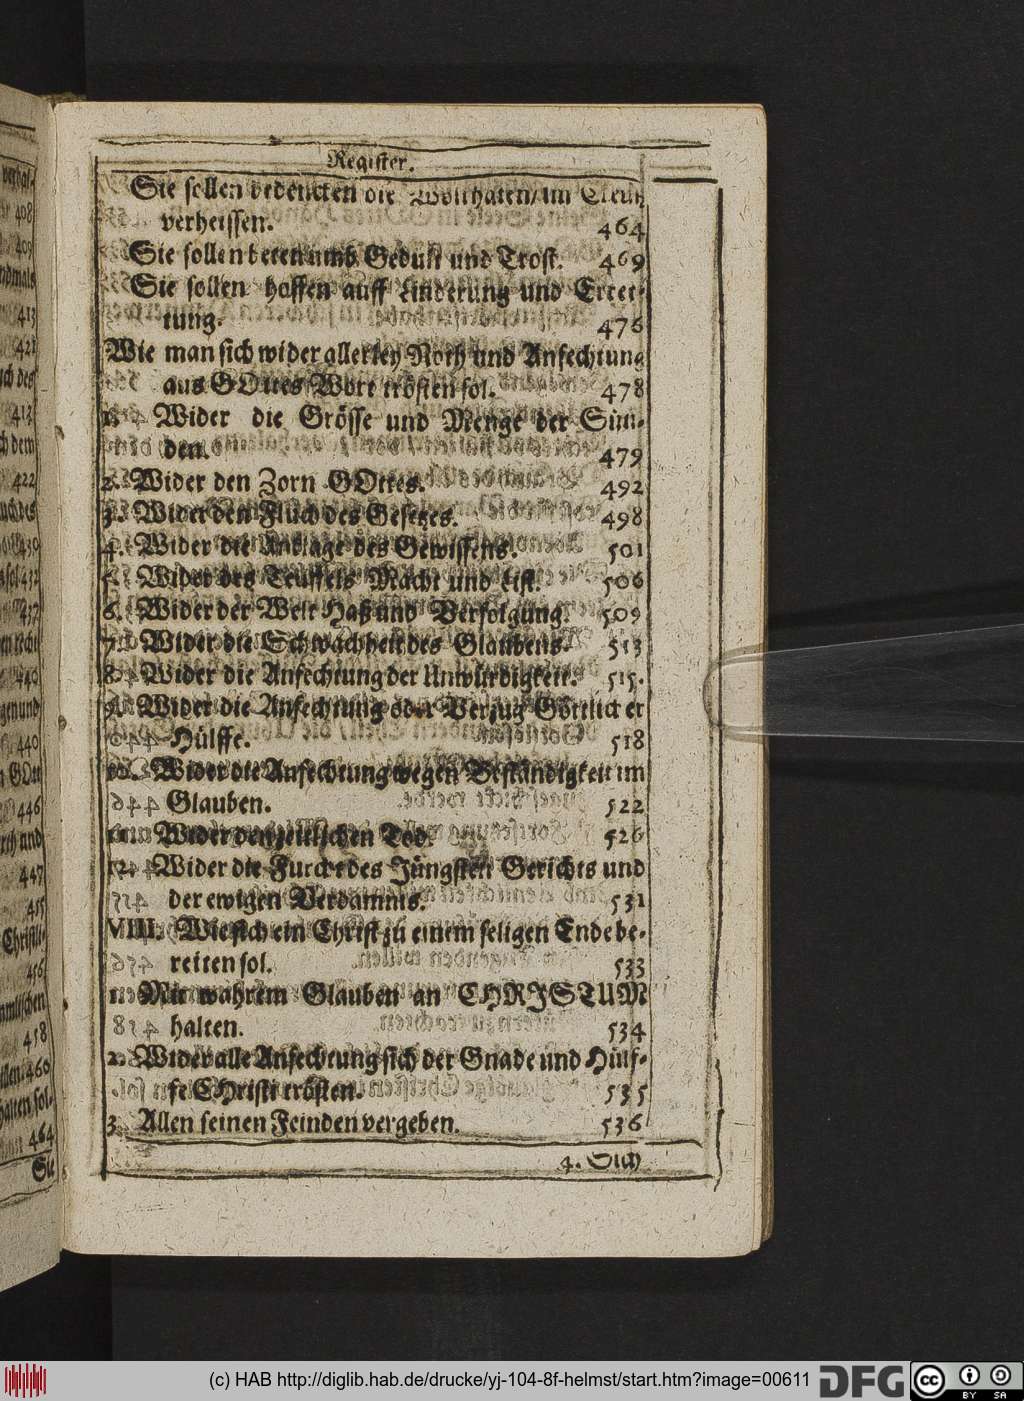 Register.
Sie sollen bedencken die Wolthaten/im Creutz
verheissen. 464
Sie sollen beten umb Gedult und Trost. 469
Sie sollen hoffen auff Linderung und Erret-
tung. 476
Wie man sich wider allerley Noth und Anfechtung
aus GOttes Wort trösten sol. 478
1. Wider die Grösse und Menge der Sün-
den. 479
2. Wider den Zorn GOttes. 492
3. Wider den Fluch des Gesetzes. 498
4. Wider die Anklage des Gewissens. 501
5. Wider des Teuffels Macht und List. 506
6. Wider der Welt Haß und Verfolgung. 509
7. Wider die Schwachheit des Glaubens. 513
8. Wider die Anfechtung der Unwürdigkeit. 515.
9. Wider die Anfechtung oder Verzug Göttlicher
Hülffe. 518
10. Wider die Anfechtung wegen Beständigkeit im
Glauben. 522
11. Wider den zeitlichen Tod. 526
12. Wider die Furcht des Jüngsten Gerichts und
der ewigen Verdamnis. 531
VIII. Wie sich ein Christ zu einem seligen Ende be-
reiten sol. 533
1. Mit wahrem Glauben an CHRISTUM
halten. 534
2. Wider alle Anfechtung sich der Gnade und Hülf-
fe CHristi trösten. 535
3. Allen seinen Feinden vergeben. 536
4. Sich
408
409
413
421
413
422
430
432
437
440
440
446
und
447
455
Christli-
456
458
460
464
Sie
(c) HAB http://diglib.hab.de/drucke/yj-104-8f-helmst/start.htm?image=00611
DFG
cc
BY SA